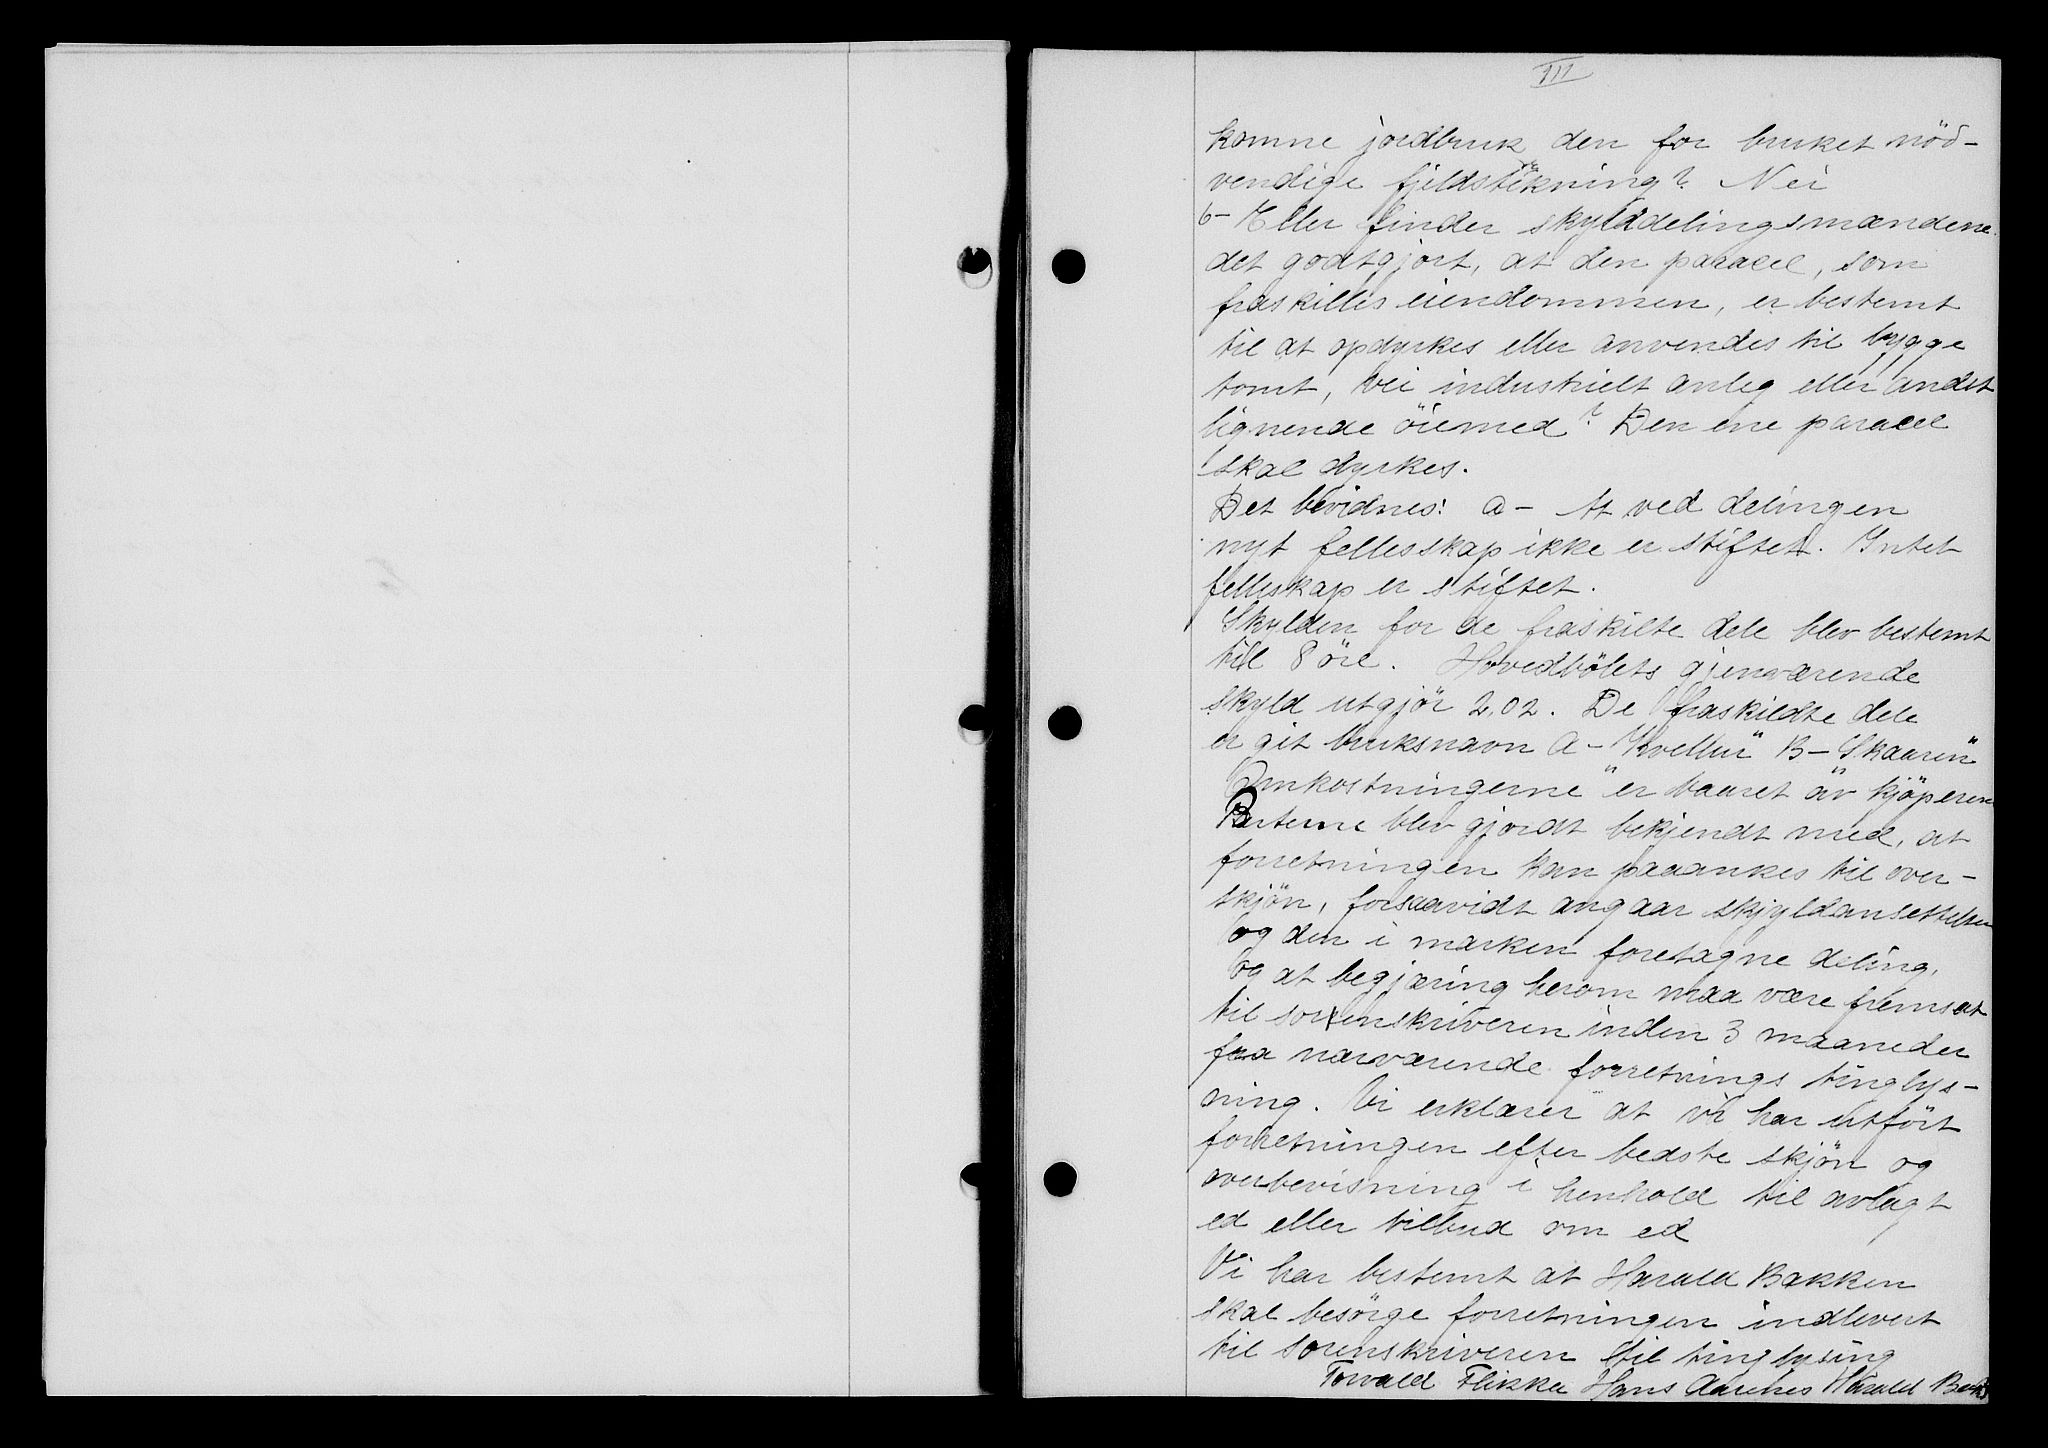 III
komne jordbruk den for bruket nöd-
vendige fjeldstrekning? Nei
b- Eller finder skylddelingsmændene
det godtgjort, at den parcel, som
fraskilles eiendommen, er bestemt
til at opdyrkes eller anvendes til bygge
tomt, vei industrielt anleg eller andet
lignende öiemed? Den ene parcel
skal dyrkes.
Det bevidnes: a- At ved delingen
nyt fellesskap ikke er stiftet. Intet
felleskap er stiftet.
Skylden for de fraskilte dele blev bestemt
til 8 öre. Hovedbölets gjenværende
skyld utgjör 2,02. De fraskildte dele
er git bruksnavn A- "Kvellur" B- "Skaaren"
Omkostningerne er baaret av kjöperen
Parterne blev gjordt bekjendt med, at
forretningen kan paaankes til over-
skjön, forsaavidt angaar skjyldansettelsen
og den i marken foretagne deling,
og at begjæring herom maa være fremsat
til sorenskriveren inden 3 maaneder
fra nærværende forretnings tinglys-
ning. Vi erklærer at vi har utfört
forretningen efter bedste skjön og
overbevisning i henhold til avlagt
ed eller tilbud om ed
Vi har bestemt at Harald Bakken
skal besörge forretningen indlevert
til sorenskriveren til tinglysing
Torvald Flikka Hans Aarhus Harald